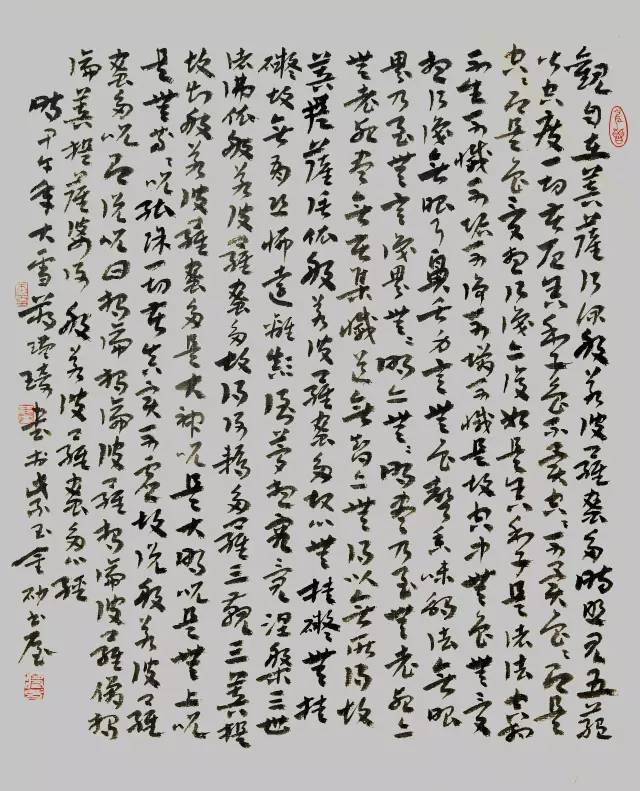 觀自在菩薩行深般若波羅蜜多時照見五蘊
皆空度一切苦厄舍利子色不異空〻不異色〻即是
空〻即是色受想行識亦復如是舍利子是諸法空相
不生不滅不垢不淨不增不減是故空中無色無受
想行識無眼耳鼻舌身意無色聲香味觸法無眼
界乃至無意識界無〻明亦無〻明盡乃至無老死亦
無老死盡無苦集滅道無智亦無得以無所得故
菩提薩埵依般若波羅蜜多故心無挂礙無挂
礙故無有恐怖遠離顛倒夢想究竟涅槃三世
諸佛依般若波羅蜜多故得阿耨多羅三藐三菩提
故知般若波羅蜜多是大神咒是大明咒是無上咒
是無等〻咒能除一切苦真實不虛故說般若波羅
蜜多咒即說咒曰揭諦揭諦波羅揭諦波羅僧揭
諦菩提薩婆訶 般若波羅蜜多心經
時甲午年大雪琦書於紫玉金砂書屋